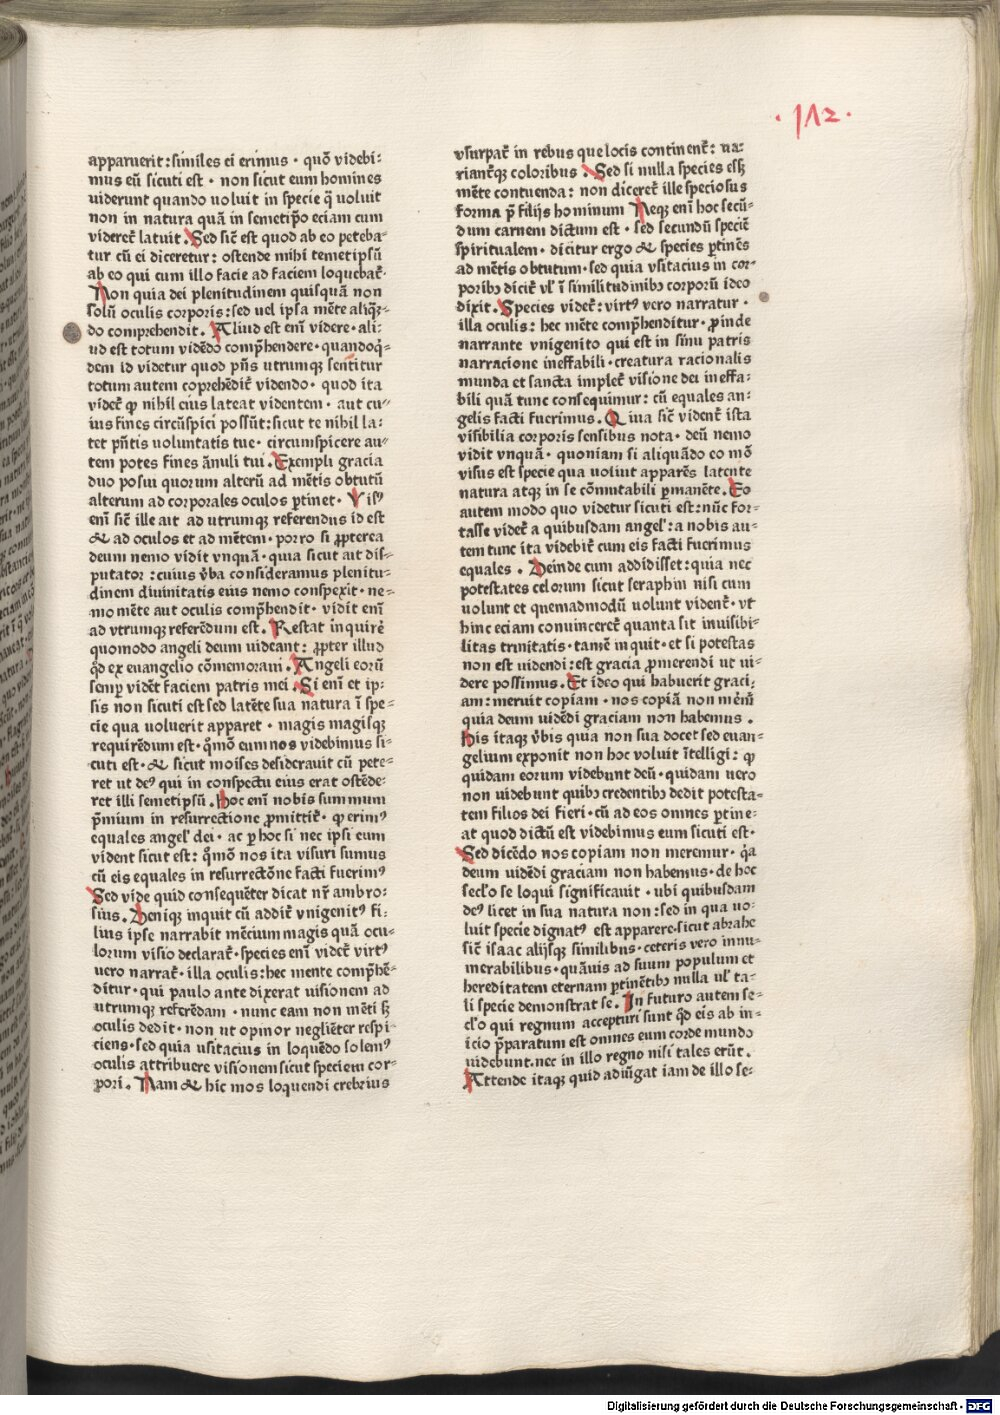 ·112·
apparuerit: similes ei erimus · quō videbi⸗
mus eū sicuti est · non sicut eum homines
viderunt quando uoluit in specie q̄ uoluit
non in natura quā in semetip̄o eciam cum
videret̄ latuit. Sed sic̄ est quod ab eo peteba⸗
tur cū ei diceretur: ostende mihi temetipsū
ab eo qui cum illo facie ad faciem loquebat̄·
Non quia dei plenitudinem quisquā non
solū oculis corporis: sed uel ipsa mēte aliqn̄⸗
do comprehendit. Aliud est enī videre · ali:
ud est totum vidēdo comp̄hendere · quandoqͥ⸗
dem id videtur quod pn̄s utrumqꝫ sentitur
totum autem coprehēdit̄ videndo · quod ita
videt̄ ꝙ nihil eius lateat videntem · aut cu⸗
ius fines circūspici possūt: sicut te nihil la:
tet pn̄tis uoluntatis tue · circumspicere au⸗
tem potes fines ānuli tui. Exempli gracia
duo posui quorum alterū ad mētis obtutū
alterum ad corporales oculos ꝑtinet · Vis⁹
enī sic̄ ille ait ad utrumqꝫ referendus id est
& ad oculos et ad mētem · porro si ꝓpterea
deum nemo vidit vnquā · quia sicut ait dis⸗
putator: cuius v̄ba consideramus plenitu⸗
dinem diuinitatis eius nemo conspexit · ne⸗
mo mēte aut oculis comp̄hendit · vidit enī
ad vtrumqꝫ referēdum est. Restat inquirē
quomodo angeli deum uideant: ꝓpter illud
qd̄ ex euangelio cōmemoraui. Angeli eorū
semꝑ vidēt faciem patris mei. Si enī et ip⸗
sis non sicuti est sed latēte sua natura ī spe⸗
cie qua uoluerit apparet · magis magisqꝫ
requirēdum est · qͦmō eum nos videbimus si⸗
cuti est · & sicut moises desiderauit cū pete⸗
ret ut de⁹ qui in conspectu eius erat ostēde:
ret illi semetipsū. Hoc enī nobis summum
p̄mium in resurrectione ꝓmittit̄ · ꝙ erim⁹
equales angel' dei · ac ꝑ hoc si nec ipsi eum
vident sicut est: qͦmō nos ita visuri sumus
cū eis equales in resurrectōne facti fuerim⁹
Sed vide quid consequēter dicat nr̄ ambro:
sius. Deniqꝫ inquit cū addit̄ vnigenit⁹ fi⸗
lius ipse narrabit mēcium magis quā ocu⸗
lorum visio declarat̄ · species enī videt̄ virt⁹
uero narrat̄ · illa oculis: hec mente comp̄hē⸗
ditur · qui paulo ante dixerat uisionem ad
utrumqꝫ referēdam · nunc eam non mēti sꝫ
oculis dedit · non ut opinor negliēter respi⸗
ciens · sed quia usitacius in loquēdo solem⁹
oculis attribuere visionem sicut speciem cor⸗
pori. Nam & hic mos loquendi crebrius
vsurpat̄ in rebus que locis continent̄: ua⸗
riant̄qꝫ coloribus. Sed si nulla species eēꝫ
mēte contuenda: non diceret̄ ille speciosus
forma p̄ filijs hominum Neqꝫ enī hoc secū⸗
dum carnem dictum est · sed secundū speciē
spiritualem · dicitur ergo & species ꝑtinēs
ad mētis obtutum · sed quia vsitacius in cor⸗
poribꝰ dicit̄ ul' ī similitudinibꝰ corporū ideo
dixit. Species videt̄: virt⁹ vero narratur ·
illa oculis: hec mēte comp̄henditur · ꝓinde
narrante vnigenito qui est in sinu patris
narracione ineffabili · creatura racionalis
munda et sancta implet̄ visione dei ineffa:
bili quā tunc consequimur: cū equales an⸗
gelis facti fuerimus. Quia sic̄ vident̄ ista
visibilia corporis sensibus nota · deū nemo
vidit vnquā · quoniam si aliquādo eo mō
visus est specie qua uoluit apparēs latente
natura atqꝫ in se cōmutabili ꝑmanēte. Eo
autem modo quo videtur sicuti est: nūc for⸗
tasse videt̄ a quibusdam angel': a nobis au⸗
tem tunc ita videbit̄ cum eis facti fuerimus
equales. Deinde cum addidisset: quia nec
potestates celorum sicut seraphin nisi cum
uolunt et quemadmodū uolunt vident̄ · vt
hinc eciam conuinceret̄ quanta sit inuisibi⸗
litas trinitatis · tamē inquit · et si potestas
non est uidendi: est gracia ꝓmerendi ut ui⸗
dere possimus. Et ideo qui habuerit graci⸗
am: meruit copiam · nos copiā non mērim̄
quia deum uidēdi graciam non habemus.
His itaqꝫ v̄bis quia non sua docet sed euan⸗
gelium exponit non hoc voluit ītelligi: ꝙ
quidam eorum videbunt deū · quidam uero
non uidebunt quibꝰ credentibꝰ dedit potesta⸗
tem filios dei fieri · cū ad eos omnes ꝑtine⸗
at quod dictū est videbimus eum sicuti est·
Sed dicēdo nos copiam non meremur · qͥa
deum uidēdi graciam non habemus · de hoc
seclo se loqui significauit · ubi quibusdam
de⁹ licet in sua natura non: sed in qua uo⸗
luit specie dignat⁹ est apparere · sicut abrahe
sic̄ isaac alijsqꝫ similibus · ceteris vero innu⸗
merabilibus · quāuis ad suum populum et
hereditatem eternam ꝑtinētibꝰ nulla ul' ta⸗
li specie demonstrat se. In futuro autem se⸗
clo qui regnum accepturi sunt qd̄ eis ab in⸗
icio p̄paratum est omnes eum corde mundo
uidebunt · nec in illo regno nisi tales erūt.
Attende itaqꝫ quid adiūgat iam de illo se⸗
Digitalisierung gefördert durch die Deutsche Forschungsgemeinschaft - DFG